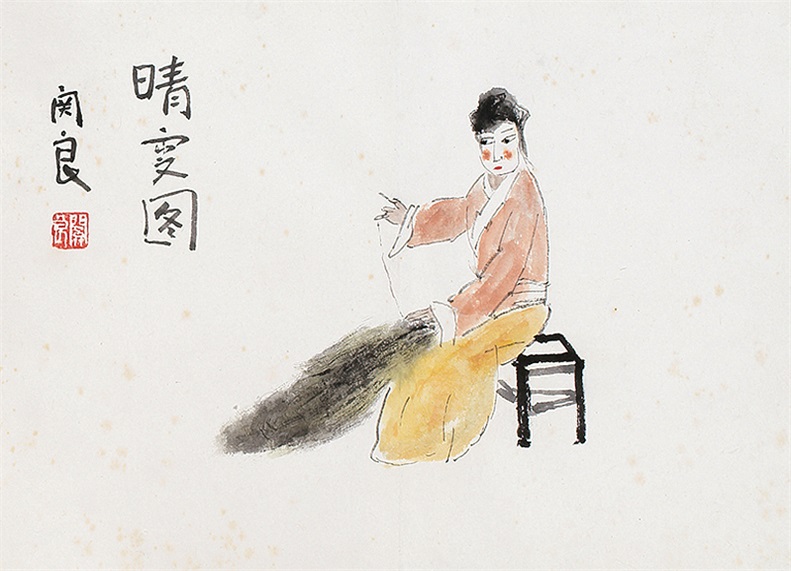 晴雯图
関良
關良